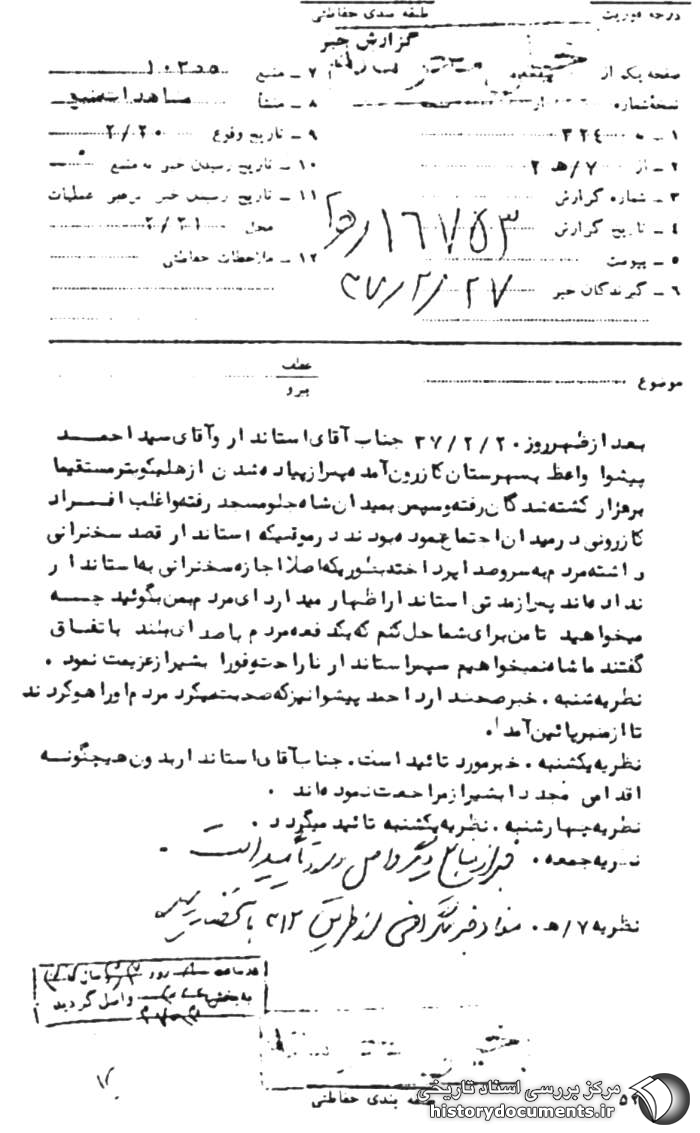 درجه فوریت
طبقه بندی حفاظتی
گزارش خبر
صفحه یک از
نسخه شماره
۱ ـ به ۳۲٤
۲ ـ از ۷/هـ ۲
۳ ـ شماره گزارش ۱٦۷۵۳
٤ ـ تاریخ گزارش
۵ ـ پیوست
٦ ـ گیرندگان خبر ۲۷ / ۲ / ۳۷
۷ ـ منبع ۱۰۳۵۵
۸ ـ منشأ مشاهدات منبع
۹ ـ تاریخ وقوع ۲/۲۰
۱۰ ـ تاریخ رسیدن خبر به منبع
۱۱ ـ تاریخ رسیدن خبر برهبر عملیات
محل ۲/۲۱
۱۲ ـ ملاحظات حفاظتی
موضوع
عطف
پیرو
بعد ازظهرروز ۳۷/۲/۲۰ جناب آقای استاندار وآقای سید احمد
پیشوا واعظ بشهرستان کازرون آمده پس از پیاده شدن از هلیکوپتر مستقیما
برمزار کشته شدگان رفته وسپس بمیدان شاه جلو مسجد رفته و اغلب افراد
کازرونی در میدان اجتماع نموده بودند در موقعیکه استاندار قصد سخنرانی
داشته مردم به سروصدا پرداخته بطوریکه اصلا اجازه سخنرانی به استاندار
نداده اند پس از مدتی استاندار اظهار میدارد ای مردم بمن بگوئید چه
میخواهید تا من برای شما حل کنم که یکدفعه مردم با صدای بلند باتفاق
گفتند ما شاه نمیخواهیم سپس استاندار ناراحت وفورا بشیراز عزیمت نمود .
نظریه شنبه . خبر صحت دارد احمد پیشوا نیز که صحبت میکرد مردم اورا هو کردند
تا از منبر پائین آمد .
نظریه یکشنبه . خبر مورد تائید است . جناب آقای استاندار بدون هیچگونه
اقدامی مجددا بشیراز مراجعت نموده اند .
نظریه چهارشنبه . نظریه یکشنبه تائید میگردد .
نظریه جمعه . خبر از منابع دیگر واصل و مورد تأیید است .
نظریه ۷/هـ . مفاد خبر تلگرافی از طریق ۳۱۲
واصل گردید
طبقه بندی حفاظتی
مرکز بررسی اسناد تاریخی
historydocuments.ir